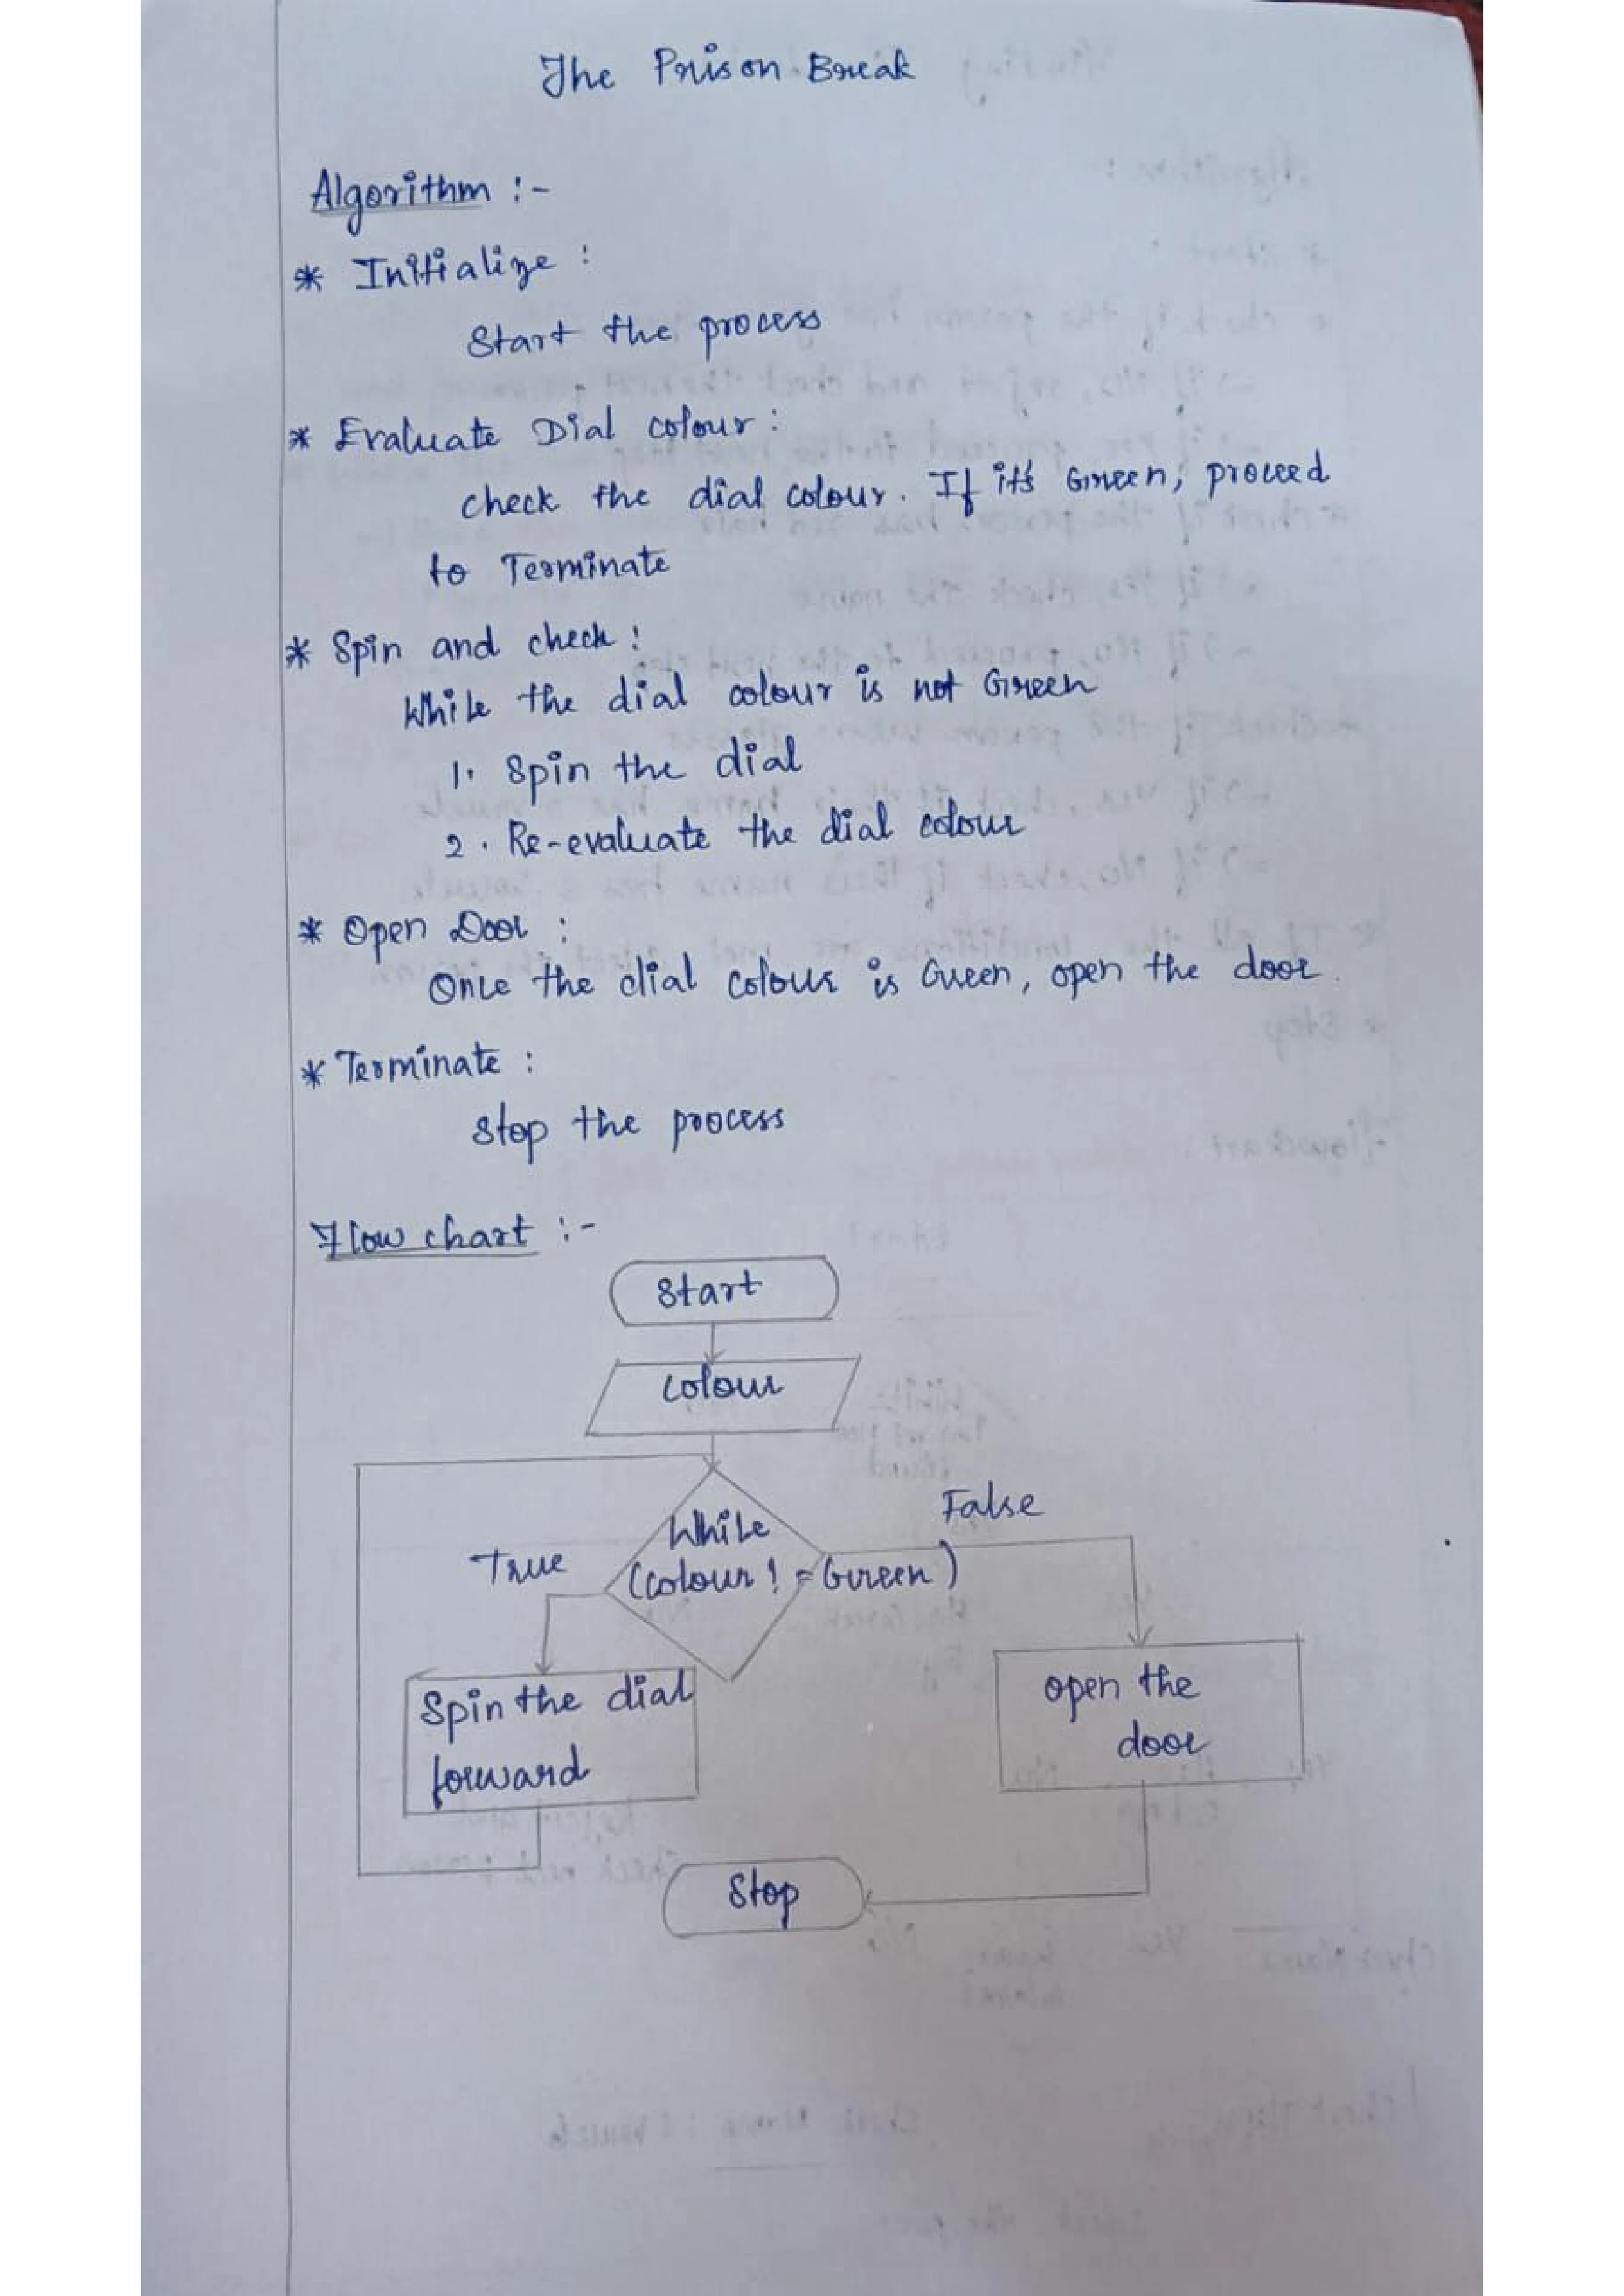 The Prison Break
Algorithm :-
* Initialize :
Start the process
* Evaluate Dial colour :
check the dial colour. If it's Green, proceed
to Terminate
* Spin and check :
While the dial colour is not Green
1. Spin the dial
2. Re-evaluate the dial colour
* Open Door :
Once the dial colour is Green, open the door.
* Terminate :
stop the process
Flow chart :-
Start
colour
False
While
True
(colour != Green)
Spin the dial
forward
open the
door
Stop